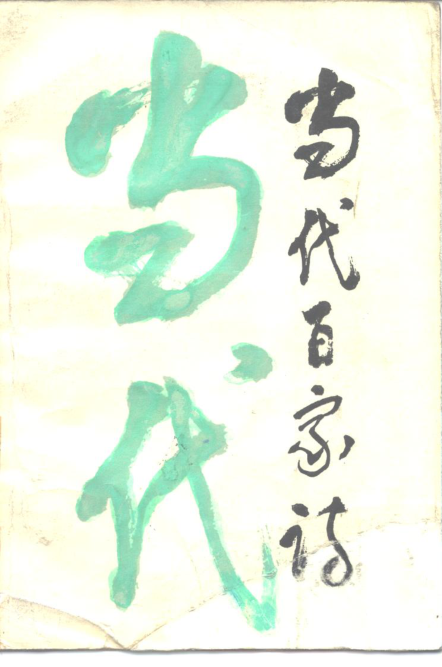 当代百家诗
当代